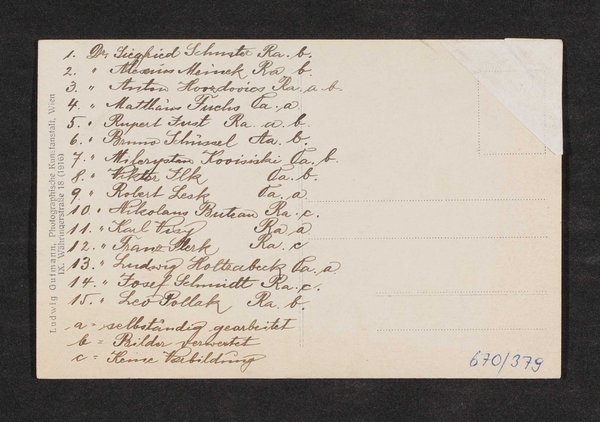 1. Dr. Siegfried Schuster Ra. b.
2. " Meinck Ra b.
3. " Anton Ra. a b.
4. " Matthäus Fuchs Ca. a
5. " Rupert Just Ra a b.
6. " Bruno Schüssel b.
7. " Ca. b.
8. " Viktor Ilk Ca. b.
9. " Robert Lesk Ca. a
10. " Nikolaus Ra. c.
11. " Karl Ra a
12. " Franz Ra. c
13. " Ludwig Ca. a
14. " Josef Schmidt Ra. c.
15. " Leo Pollak Ra. b.
a = selbständig gearbeitet
b = Bilder verwertet
c = Keine Vorbildung
Ludwig Gutmann, Photographische Kunstanstalt, Wien
IX. Währingerstraße 18 (1916)
670/379